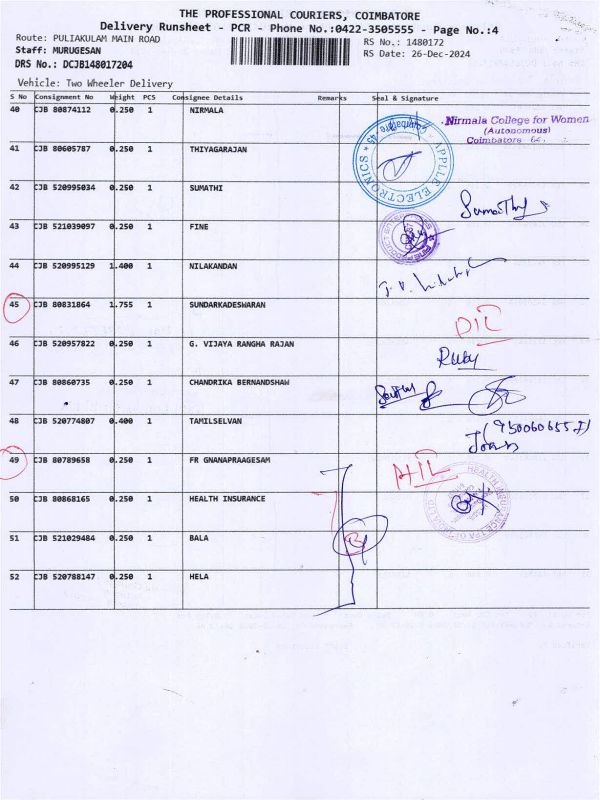 THE PROFESSIONAL COURIERS, COIMBATORE
Delivery Runsheet - PCR - Phone No.:0422-3505555 - Page No.:4
Route: PULIAKULAM MAIN ROAD
RS No.: 1480172
Staff: MURUGESAN
RS Date: 26-Dec-2024
DRS No.: DCJB148017204
Vehicle: Two Wheeler Delivery
S No Consignment No Weight PCS Consignee Details Remarks Seal & Signature
40 CJB 80874112 0.250 1 NIRMALA
Nirmala College for Women
(Autonomous)
Coimbatore
41 CJB 80605787 0.250 1 THIYAGARAJAN
APPLE ELECTRONICS * Coimbatore - 45 *
42 CJB 520995034 0.250 1 SUMATHI
Sumathy
43 CJB 521039097 0.250 1 FINE
44 CJB 520995129 1.400 1 NILAKANDAN
45 CJB 80831864 1.755 1 SUNDARKADESWARAN
46 CJB 520957822 0.250 1 G. VIJAYA RANGHA RAJAN
Ruby
47 CJB 80860735 0.250 1 CHANDRIKA BERNANDSHAW
48 CJB 520774807 0.400 1 TAMILSELVAN
49 CJB 80789658 0.250 1 FR GNANAPRAAGESAM
50 CJB 80868165 0.250 1 HEALTH INSURANCE
HEALTH INSURANCE TPA OF INDIA LTD
51 CJB 521029484 0.250 1 BALA
52 CJB 520788147 0.250 1 HELA